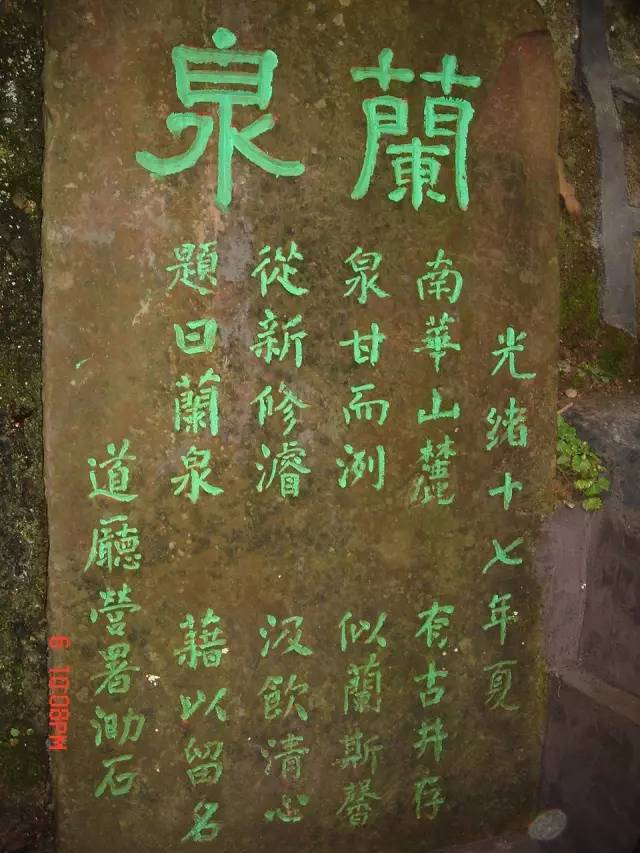 蘭泉
光緒十七年夏
南華山麓 有古井存
泉甘而洌 似蘭斯馨
從新修濬 汲飲清心
題曰蘭泉 藉以留名
道廳營署泐石
6 10:08PM